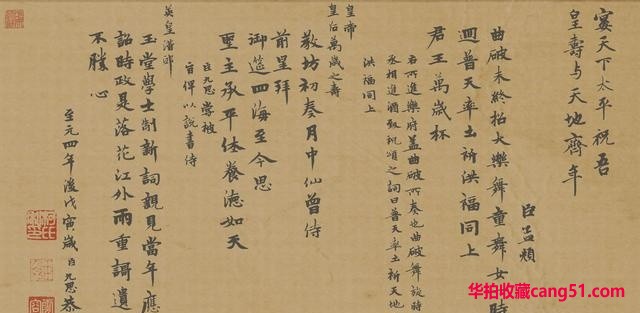 宴天下太平祝吾
皇壽与天地齊年
臣孟頫
曲破未終招大樂舞童舞女時
迴普天率土祈洪福同上
君王萬歲杯
右所進樂府蓋曲破所奏也曲破舞旋時
丞相進酒致祝頌之詞曰普天率土祈天地
洪福同上
皇帝
皇后萬歲之壽
教坊初奏月中仙曾侍
前星拜
御筵四海至今思
聖主承平休養德如天
臣九思嘗被
旨俾以說書侍
英皇潛邸
玉堂學士制新詞親見當年應
詔時政是落花江外雨重謌遺
不勝心
至元四年後戊寅歲臣九思恭
柯氏
华拍收藏cang51.com